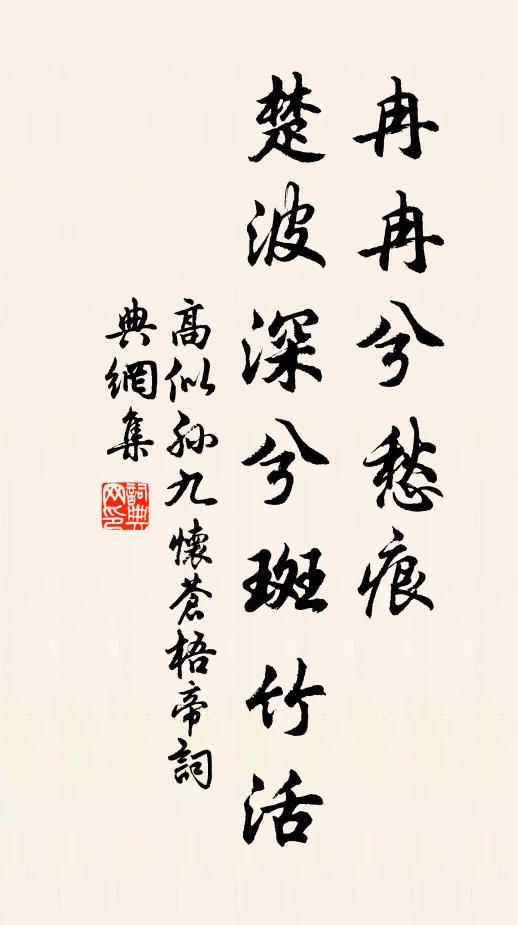 冉冉兮愁痕
楚波深兮斑竹活
高似孙九懷蒼梧帝詞
典網集
詞典网印